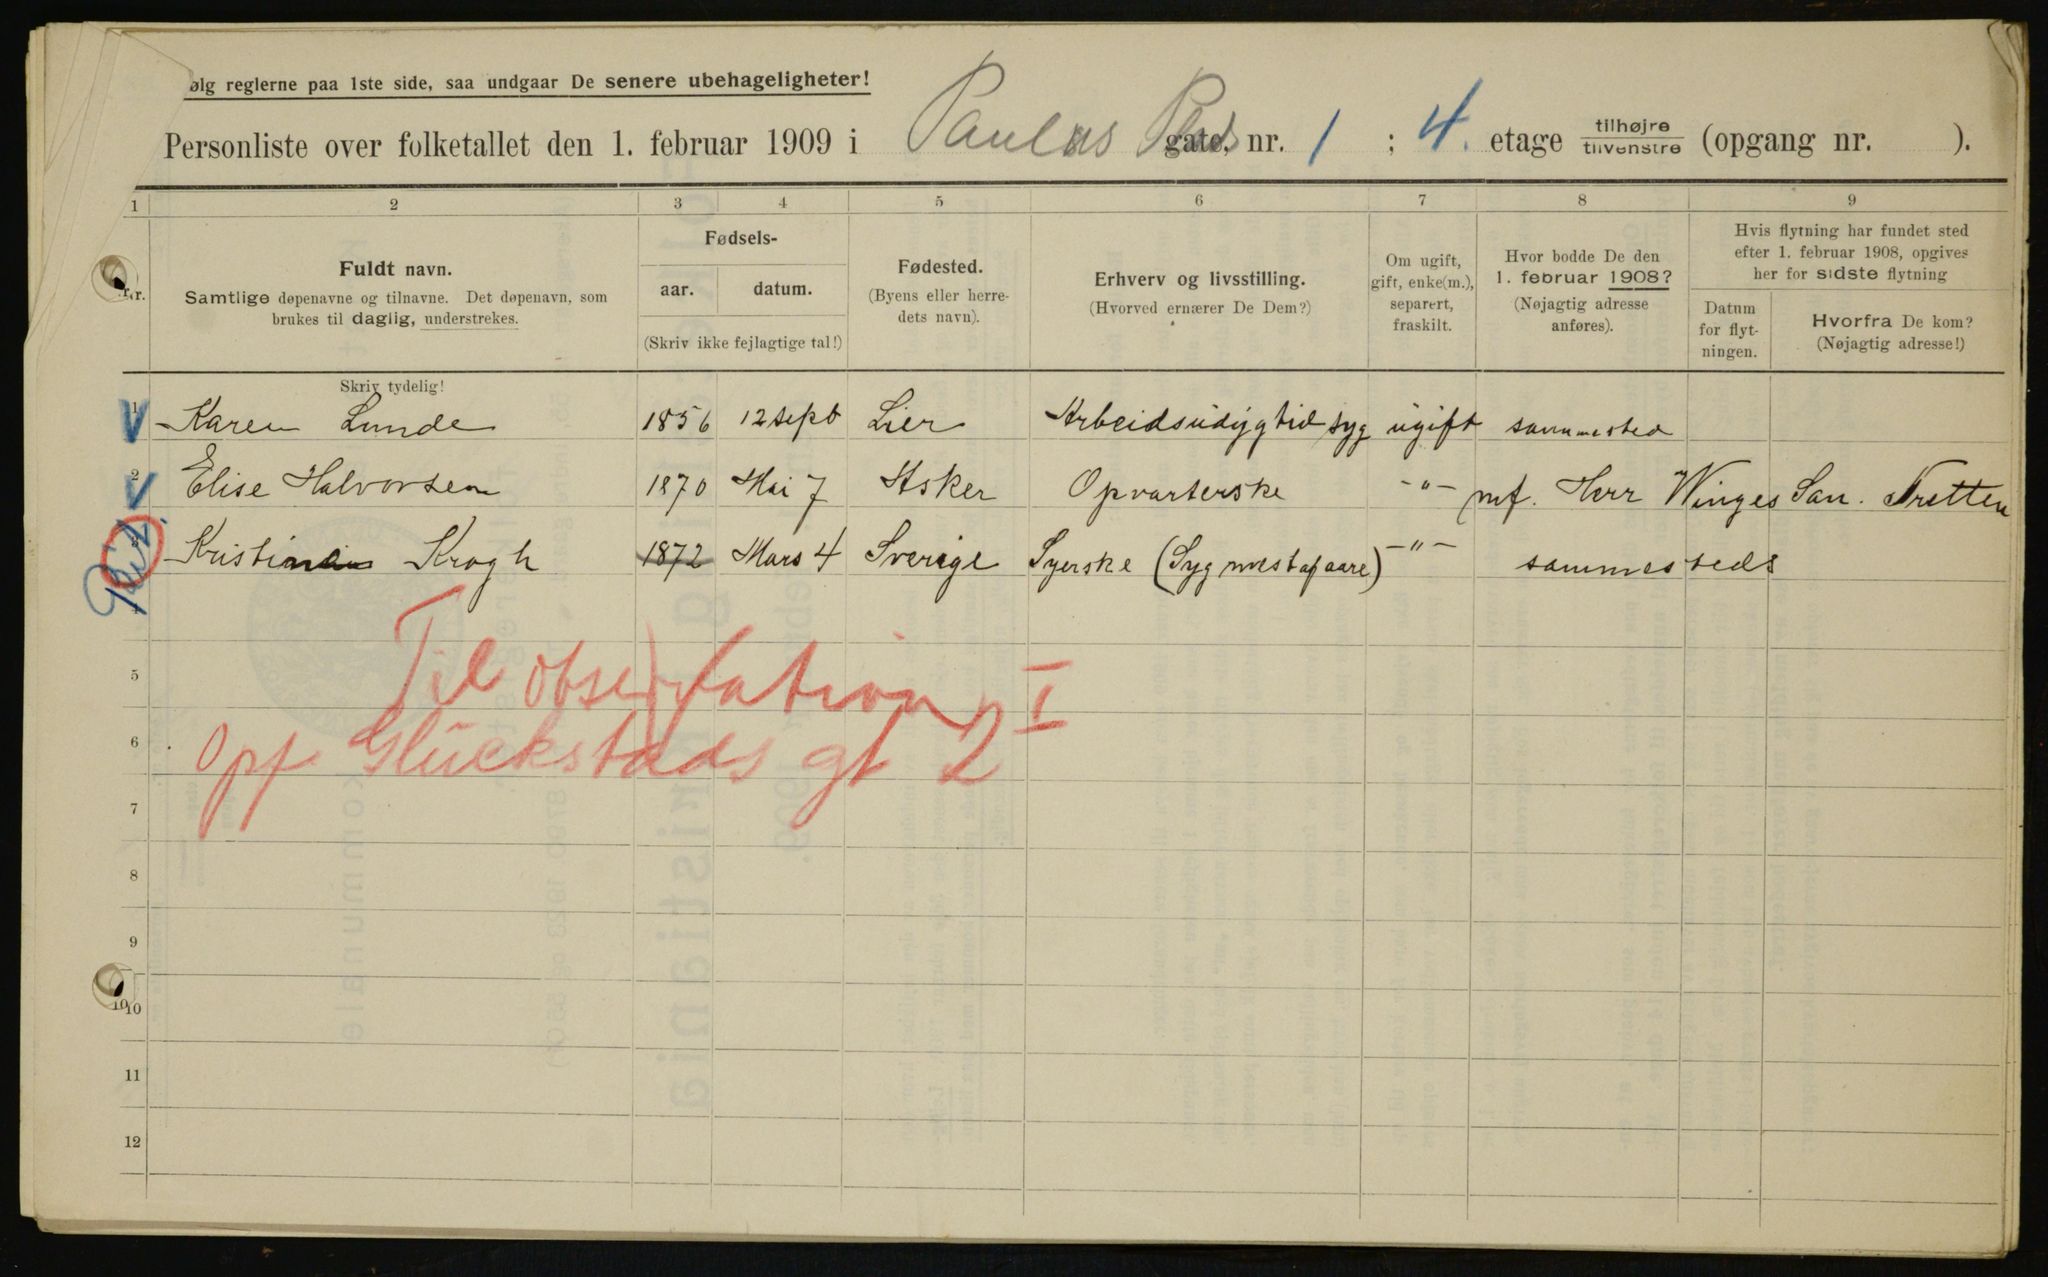 ølg reglerne paa 1ste side, saa undgaar De senere ubehageligheter!
Personliste over folketallet den 1. februar 1909 i Paulus Plads gate, nr. 1 ; 4. etage tilhøjre tilvenstre (opgang nr. ).
1 2 3 4 5 6 7 8 9
Nr.
Fuldt navn.
Samtlige døpenavne og tilnavne. Det døpenavn, som
brukes til daglig, understrekes.
Fødsels-
aar. datum.
(Skriv ikke fejlagtige tal!)
Fødested.
(Byens eller herre-
dets navn).
Erhverv og livsstilling.
(Hvorved ernærer De Dem?)
Om ugift,
gift, enke(m.),
separert,
fraskilt.
Hvor bodde De den
1. februar 1908?
(Nøjagtig adresse
anføres).
Hvis flytning har fundet sted
efter 1. februar 1908, opgives
her for sidste flytning
Datum
for flyt-
ningen.
Hvorfra De kom?
(Nøjagtig adresse!)
Skriv tydelig!
1 Karen Lunde 1856 12 sept Lier Arbeidsudygtid syg ugift sammested
2 Elise Halvorsen 1870 Mai 7 Asker Opvarterske -"- mf. Herr Winges San. Tretten
3 Kristine Krogh 1872 Mars 4 Sverige Syerske (Syg mestapaare) -"- sammesteds
4
Til observation I
5
opf Glückstads gt 2
6
7
8
9
10 10
11
12